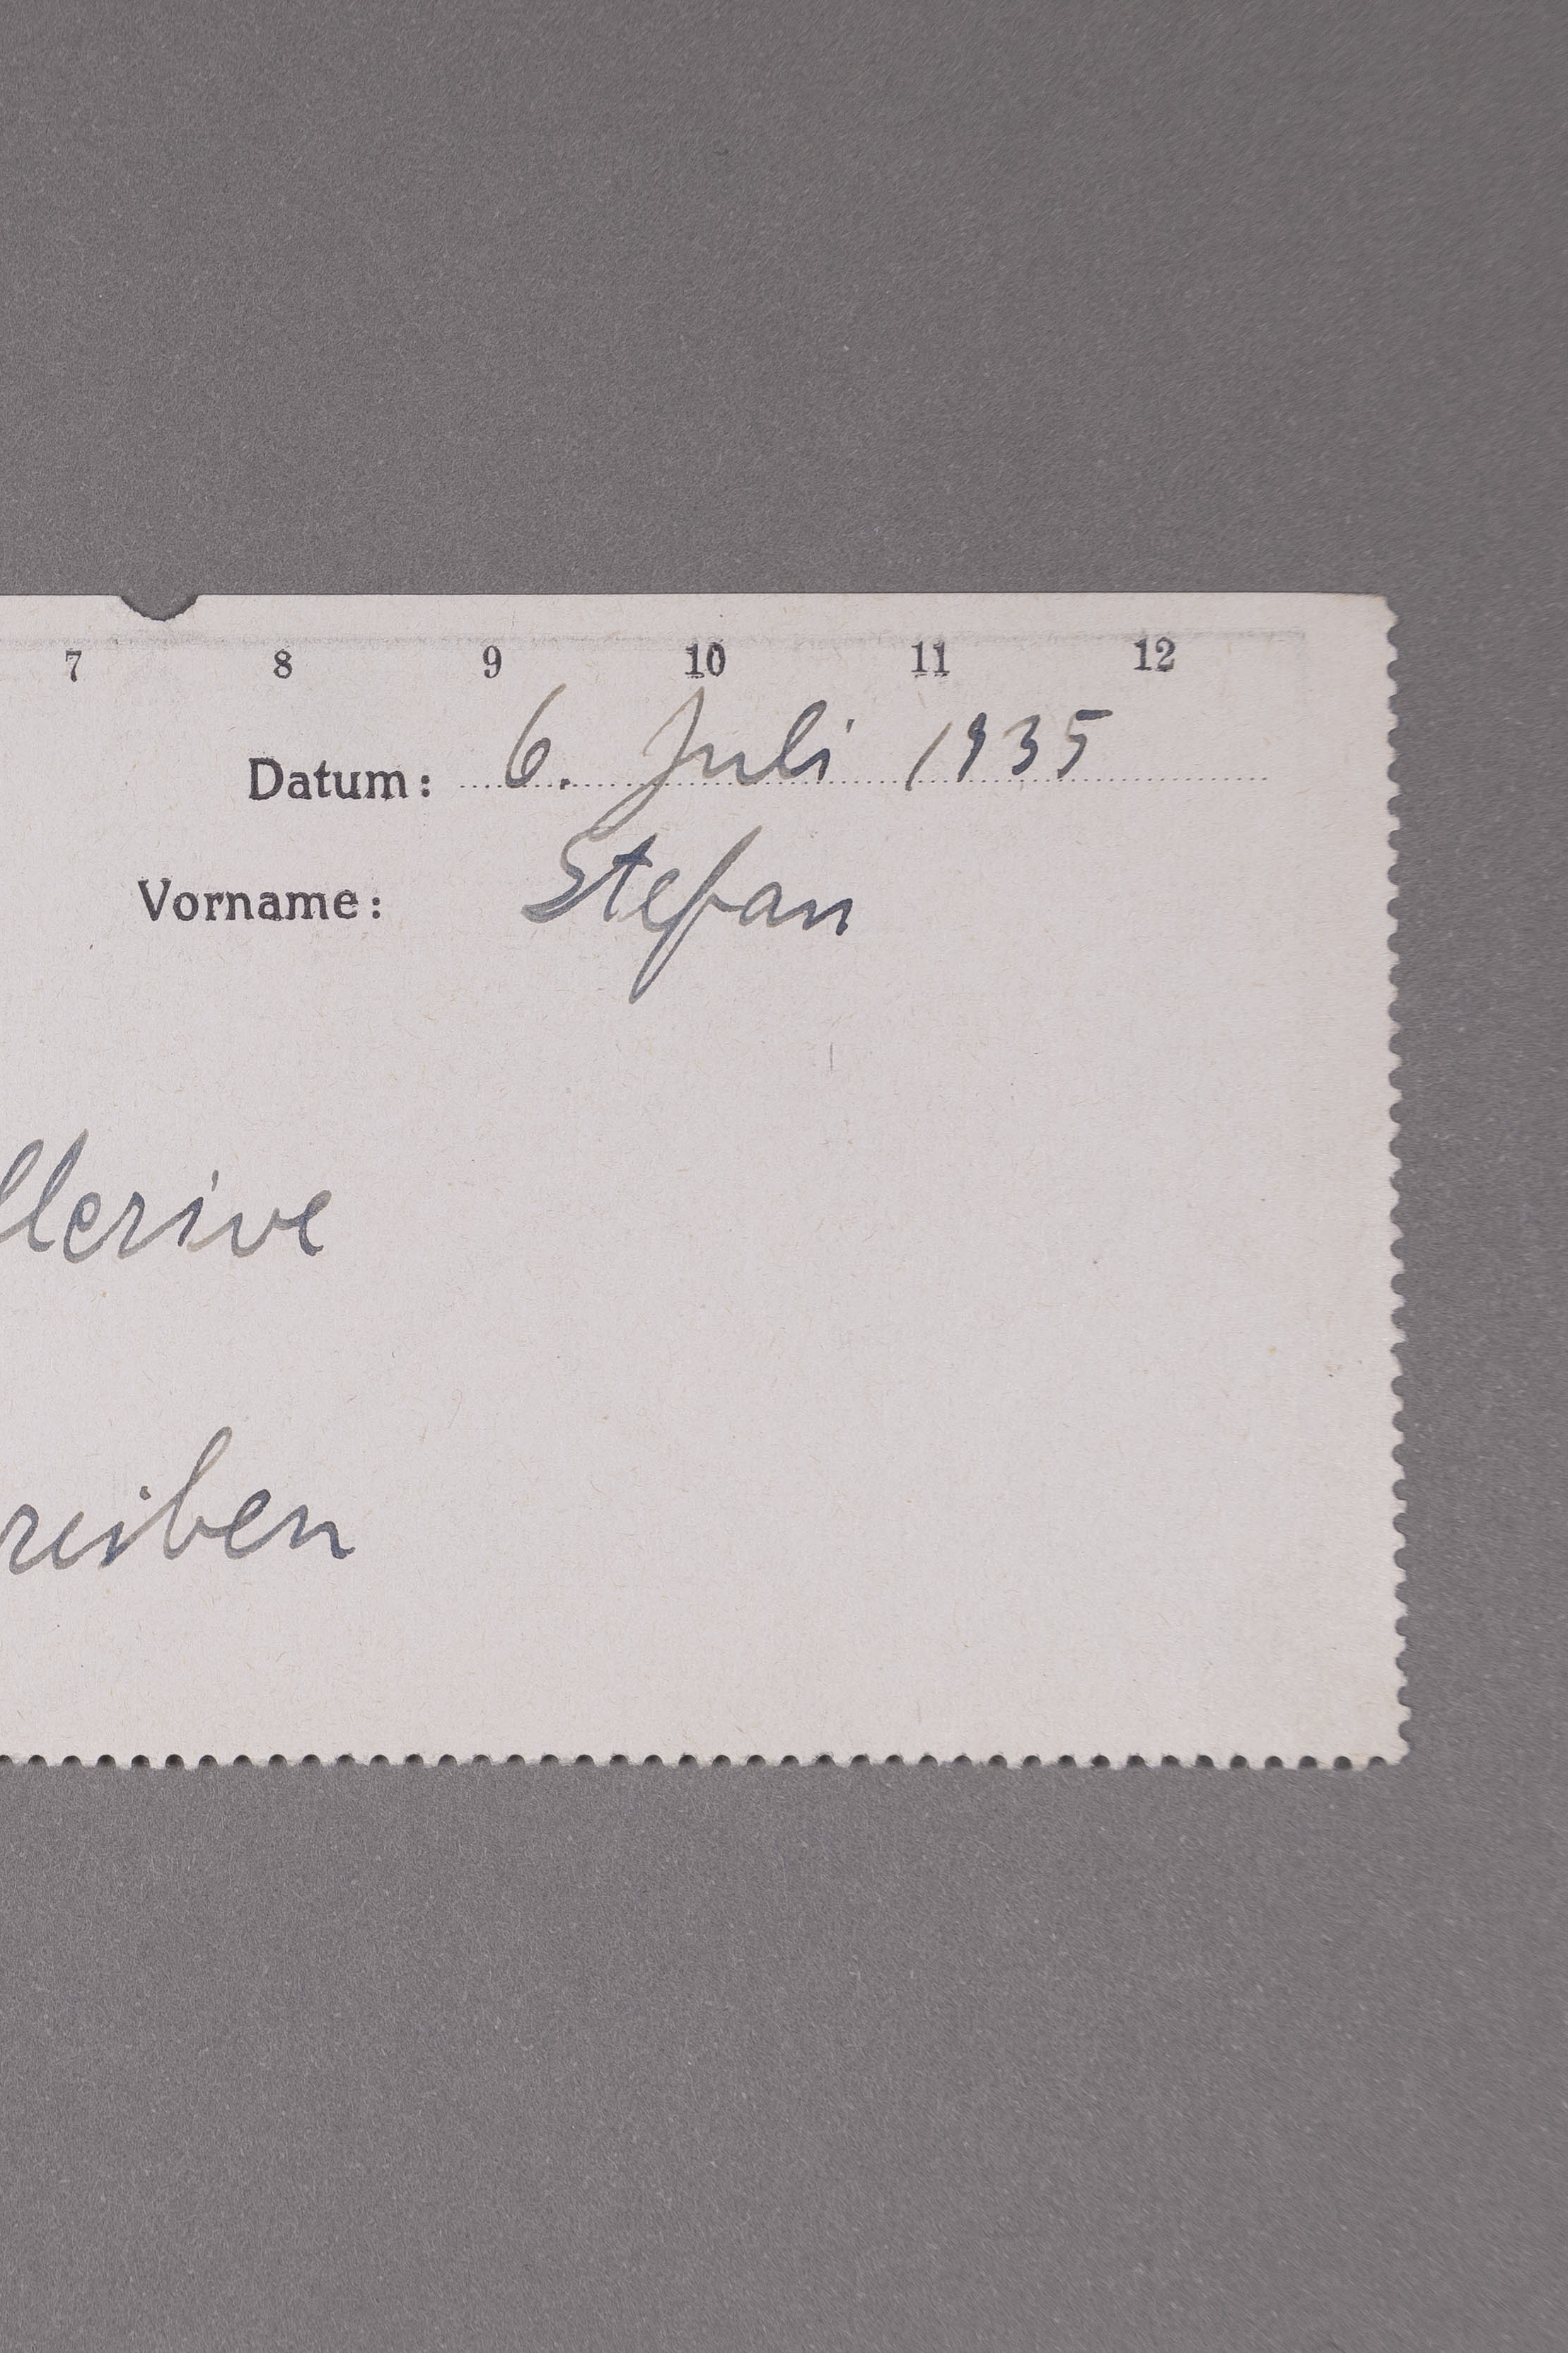 7 8 9 10 11 12
Datum: 6. Juli 1935
Vorname: Stefan
llerive
reiben